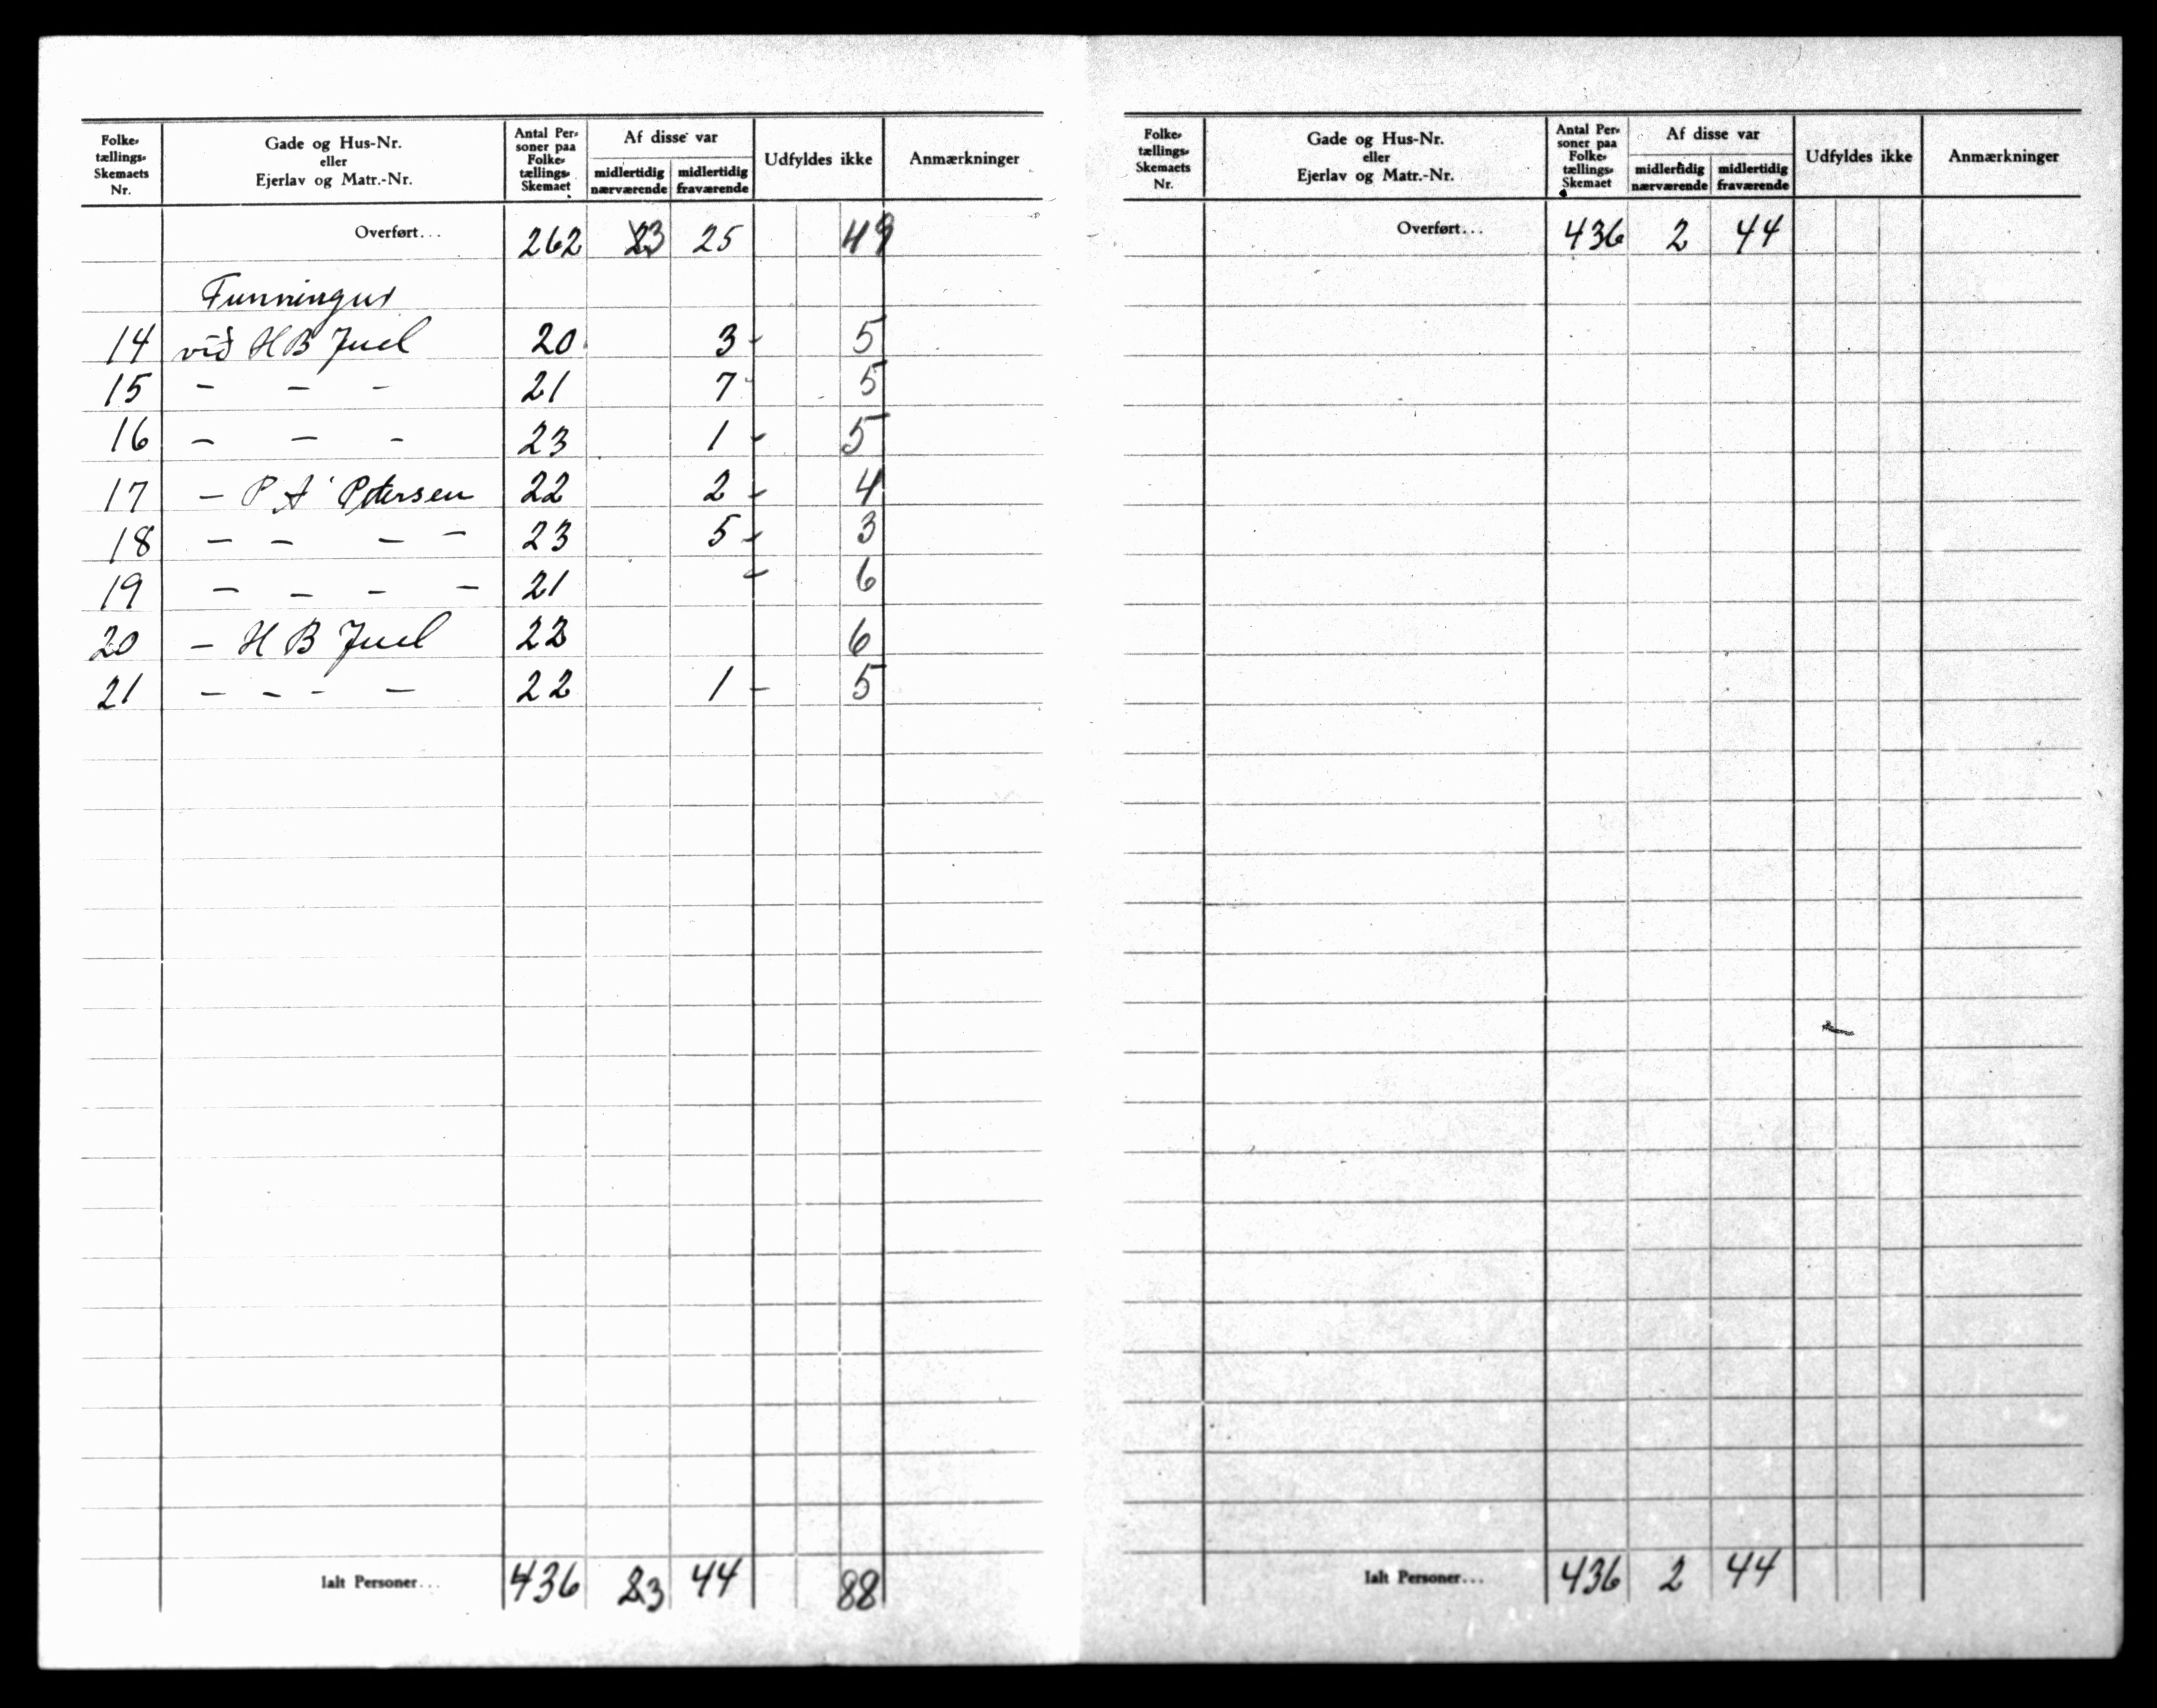 Folke-
tællings-
Skemaets
Nr.
Gade og Hus-Nr.
eller
Ejerlav og Matr.-Nr.
Antal Per-
soner paa
Folke-
tællings-
Skemaet
Af disse var
midlertidig
nærværende
midlertidig
fraværende
Udfyldes ikke
Anmærkninger
Overført... 262 3 25 49
Funningur
14 við H B Juel 20 3 - 5
15 - - - 21 7 5
16 - - - 23 1 - 5
17 - P A Petersen 22 2 - 4
18 - - - - 23 5 - 3
19 - - - - 21 - 6
20 - H B Juel 22 6
21 - - - - 22 1 - 5
Ialt Personer... 436 3 44 88
Folke-
tællings-
Skemaets
Nr.
Gade og Hus-Nr.
eller
Ejerlav og Matr.-Nr.
Antal Per-
soner paa
Folke-
tællings-
Skemaet
Af disse var
midlertidig
nærværende
midlertidig
fraværende
Udfyldes ikke
Anmærkninger
Overført... 436 2 44
Ialt Personer... 436 2 44